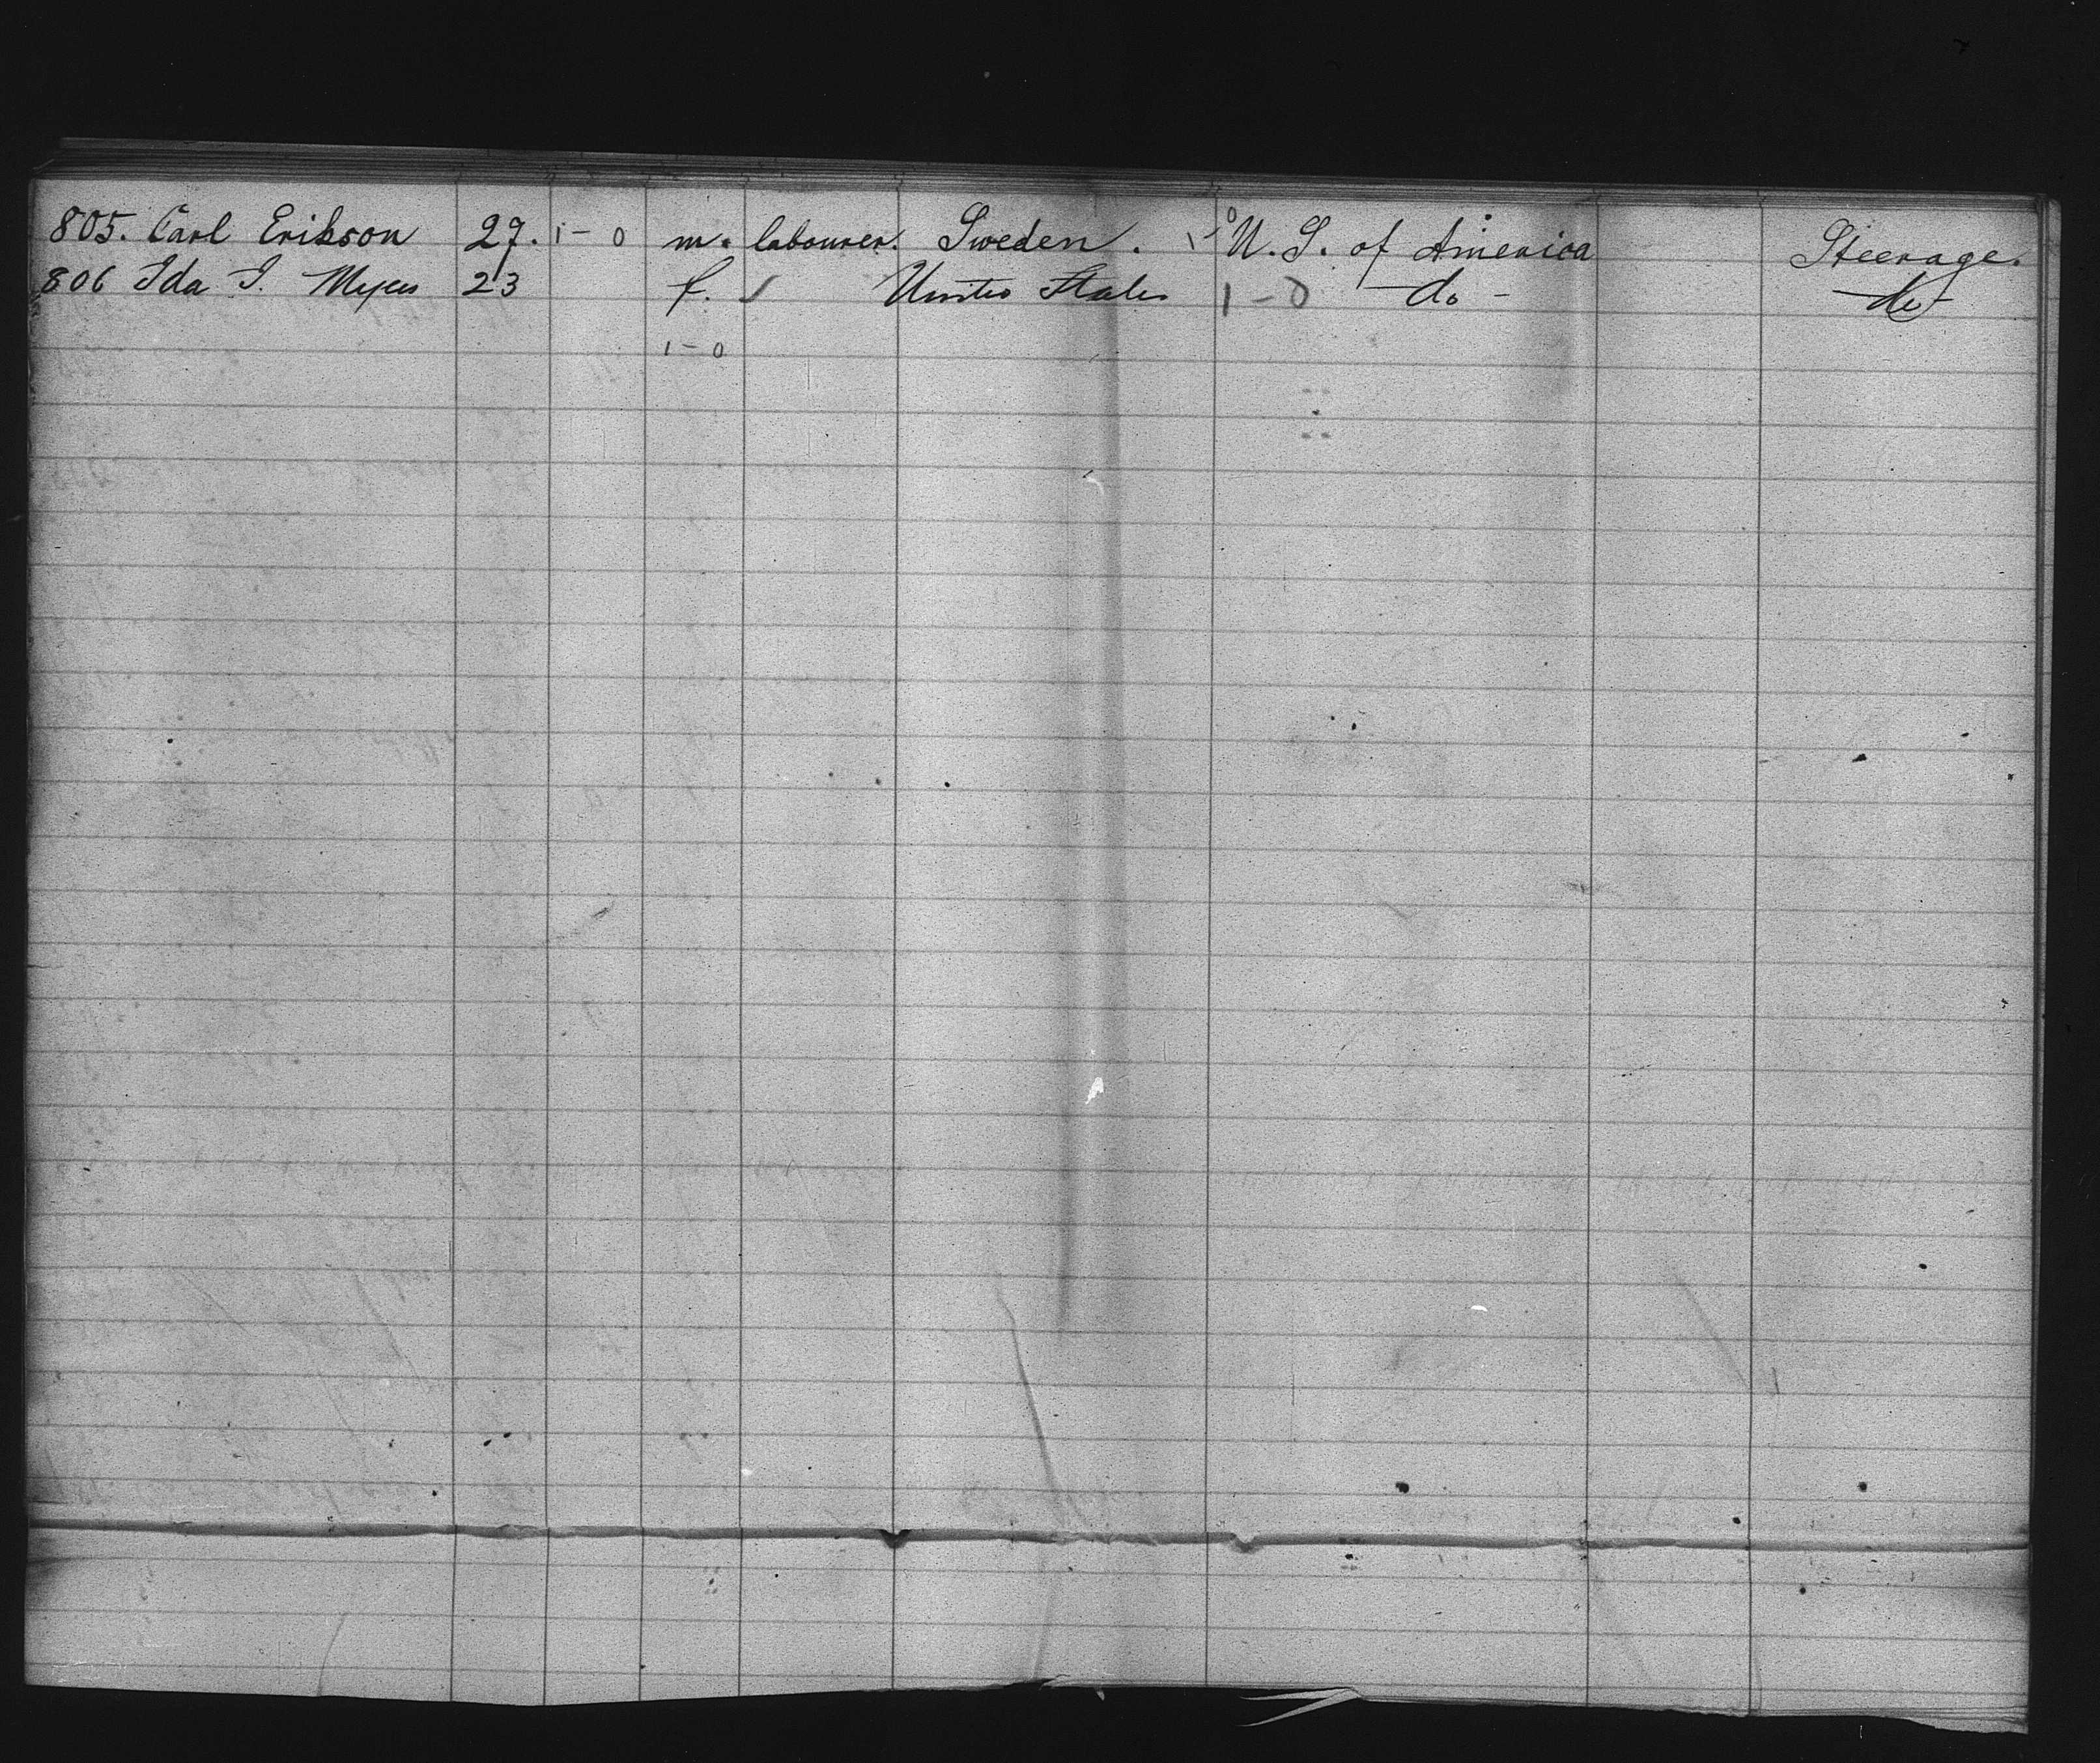 805. Carl Erikson 27. 1-0 m. labourer. Sweden. 1-0 U. S. of America Steerage.
806 Ida I. Myers 23 f. ✓ United States 1-0 do - do
1-0